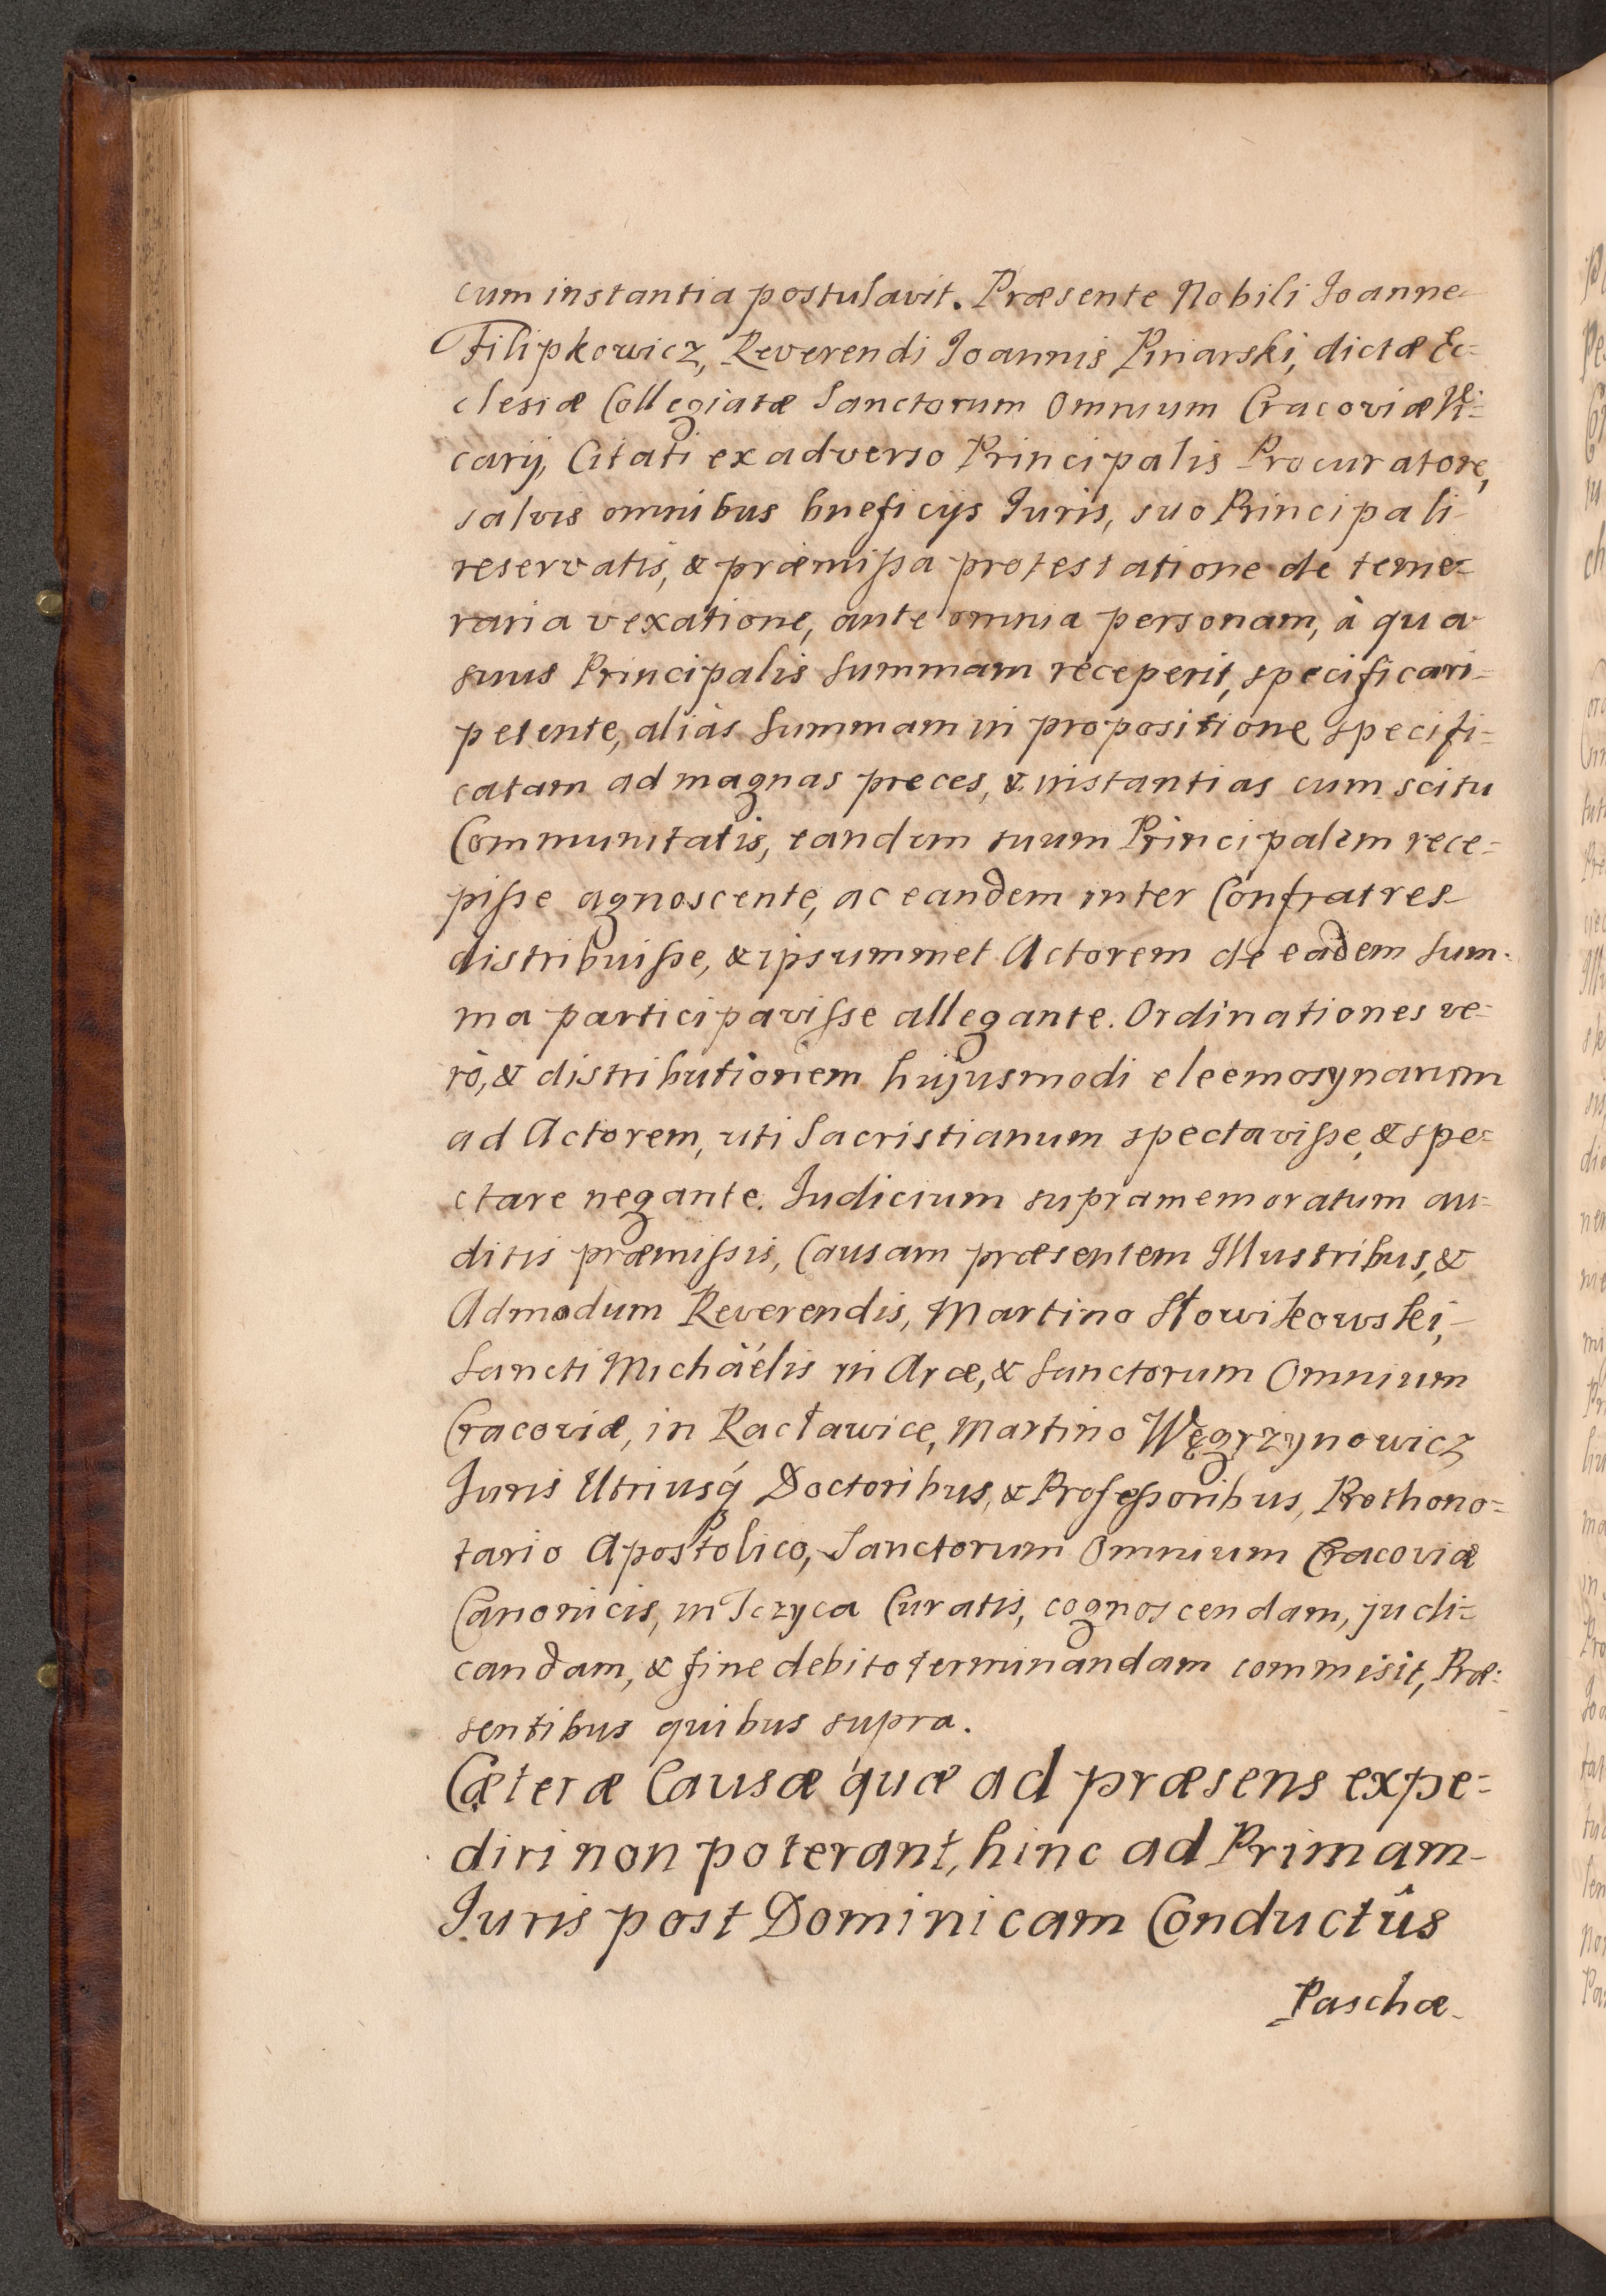 cum instantia postulavit. Præsente Nobili Joanne
Filipkowicz, Reverendi Joannis Piniarski, dictæ Ec=
clesiæ Collegiatæ Sanctorum Omnium Cracoviæ Vi=
carij, Citati ex adverso Principalis Procuratore,
salvis omnibus bneficijs Juris, suo Principali
reservatis, & præmissa protestatione de teme=
raria vexatione, ante omnia personam, à qua
suus Principalis Summam receperit, specificari
petente, aliàs Summam in propositione specifi=
catam ad magnas preces, & instantias cum scitu
Communitatis, eandem suum Principalem rece=
pisse agnoscente, ac eandem inter Confratres
distribuisse, & ipsummet Actorem de eadem Sum=
ma participavisse allegante. Ordinationes ve=
rò, & distributionem hujusmodi eleemosynarum
ad Actorem, uti Sacristianum spectavisse, & spe=
ctare negante. Judicium supramemoratum au=
ditis præmissis, Causam præsentem Illustribus, &
Admodum Reverendis, Martino Słowikowski,
Sancti Michäelis in Arce, & Sanctorum Omnium
Cracoviæ, in Racławice, Martino Węgrzynowicz
Juris Utriusq́ Doctoribus, & Professoribus, Prothono=
tario Apostolico, Sanctorum Omnium Cracoviæ
Canonicis, in Tczyca Curatis, cognoscendam, judi=
candam, & fine debito terminandam commisit, Præ=
sentibus quibus supra.
Cæteræ Causæ quæ ad præsens expe=
diri non poterant, hinc ad Primam
Juris post Dominicam Conductûs
Paschæ